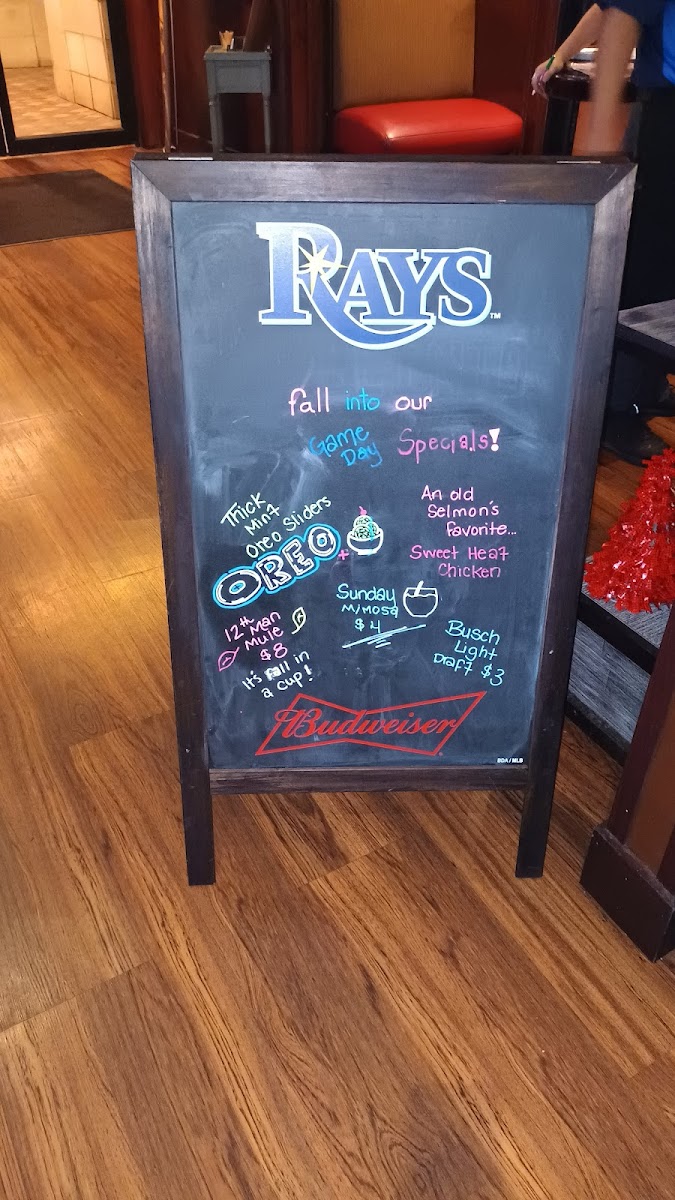 RAYS™
fall into our
Game Day Specials!
Thick
Mint
Oreo Sliders
OREO
+
An old
Selmon's
favorite...
Sweet Heat
Chicken
12th Man
Mule
$8
It's fall in
a cup!
Sunday
Mimosa
$4
Busch
Light
Draft $3
Budweiser
BDA / MLB